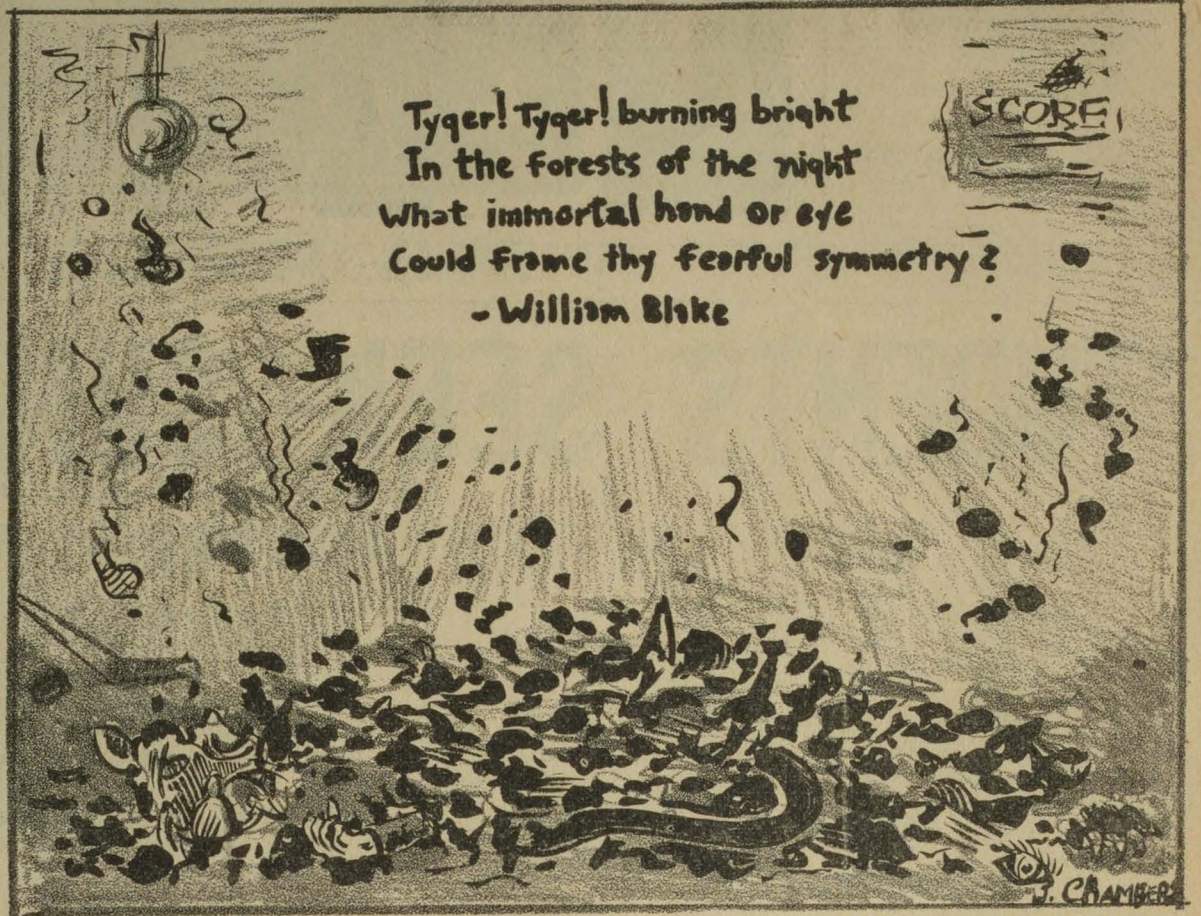 Tyger! Tyger! burning bright
In the forests of the night
What immortal hand or eye
Could frame thy fearful symmetry?
- William Blake
SCORE
J. CHAMBERS